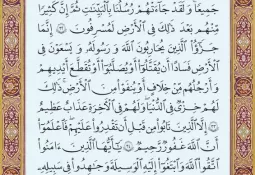 جَمِيعًا وَلَقَدْ جَآءَتْهُمْ رُسُلُنَا بِٱلْبَيِّنَٰتِ ثُمَّ إِنَّ كَثِيرًا
مِّنْهُم بَعْدَ ذَٰلِكَ فِى ٱلْأَرْضِ لَمُسْرِفُونَ ٣٢ إِنَّمَا
جَزَٰٓؤُا۟ ٱلَّذِينَ يُحَارِبُونَ ٱللَّهَ وَرَسُولَهُۥ وَيَسْعَوْنَ فِى
ٱلْأَرْضِ فَسَادًا أَن يُقَتَّلُوٓا۟ أَوْ يُصَلَّبُوٓا۟ أَوْ تُقَطَّعَ أَيْدِيهِمْ
وَأَرْجُلُهُم مِّنْ خِلَٰفٍ أَوْ يُنفَوْا۟ مِنَ ٱلْأَرْضِ ذَٰلِكَ
لَهُمْ خِزْىٌ فِى ٱلدُّنْيَا وَلَهُمْ فِى ٱلْءَاخِرَةِ عَذَابٌ عَظِيمٌ
٣٣ إِلَّا ٱلَّذِينَ تَابُوا۟ مِن قَبْلِ أَن تَقْدِرُوا۟ عَلَيْهِمْ فَٱعْلَمُوٓا۟
أَنَّ ٱللَّهَ غَفُورٌ رَّحِيمٌ ٣٤ يَٰٓأَيُّهَا ٱلَّذِينَ ءَامَنُوا۟
ٱتَّقُوا۟ ٱللَّهَ وَٱبْتَغُوٓا۟ إِلَيْهِ ٱلْوَسِيلَةَ وَجَٰهِدُوا۟ فِى سَبِيلِهِۦ